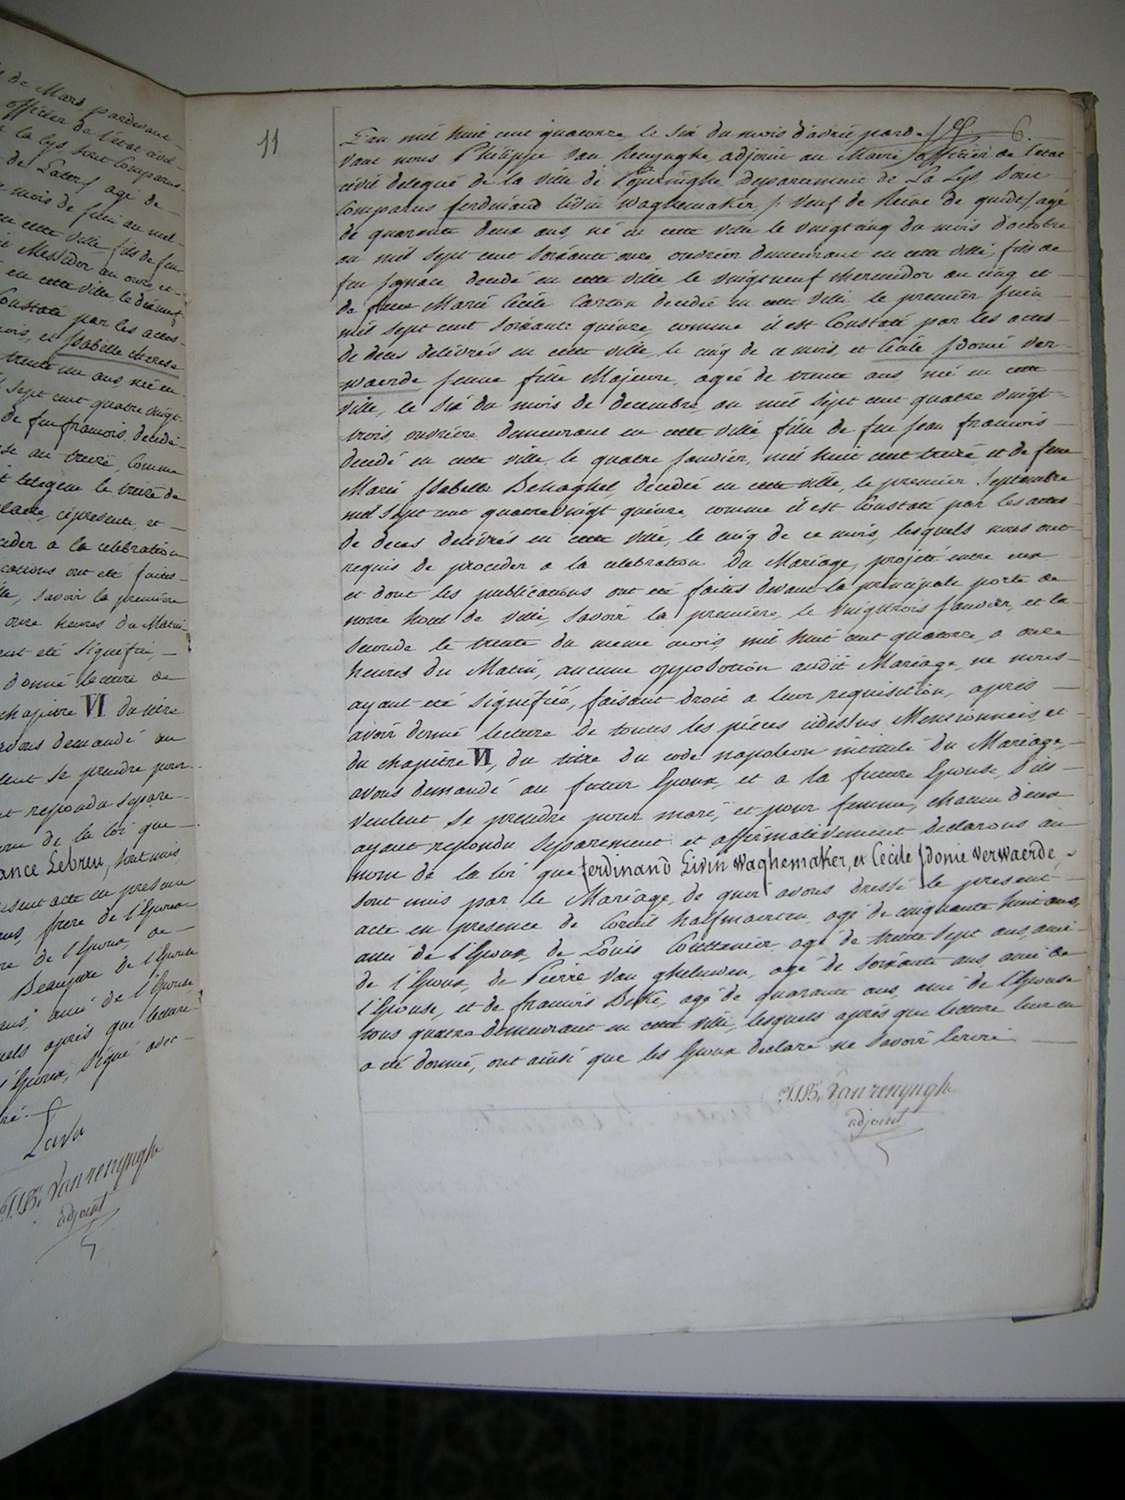 de Mars pardevant
officier de l'état civil
la Lys sont Comparus
de Later / agé de
mois de juin an mil
en cette ville fils de feu
Messidor an onze et
en cette ville le
Constaté par les actes
mois, et Isabelle therese
trente un ans, née en
sept cent quatre vingt
de feu francois, decedé
au treize, comme
le treize de
ceder a la celebration
cations ont été faites
savoir la premiere
onze heures du Matin
ant été signifiée,
donné lecture de
chapitre VI du titre
avons demandé au
lent se prendre pour
nt repondu separe
nom de la loi que
ance Lebreu, sont unis
present acte en presence
frere de l'Epoux
re de l'Epoux, de
Beaupere de l'Epouse
ami de l'Epouse
quels après que lecture
l'Epoux, signé avec
P.J.B. Vanrenynghe
adjoint
11
6.
L'an mil huit cent quatorze le six du mois d'avril parde
vant nous Philippe Van Renynghe adjoint au Maire officier de l'état
civil delegué de la ville de Poperinghe departement de La Lys, sont
Comparus ferdinand Livin Waghemaker / veuf de Reine de quide / agé
de quarante deux ans, né en cette ville le vingt cinq du mois d'octobre
an mil sept cent soixante onze, ouvrier demeurant en cette ville, fils de
feu Ignace decedé en cette ville le vingt neuf thermidor an cinq et
de feue Marie Cecile Carton decedée en cette ville le premier juin
mil sept cent soixante quinze, comme il est Constaté par les actes
de deces delivrés en cette ville, le cinq de ce mois, et Cecile Idonie Ver-
waerde, jeune fille Majeure, agée de trente ans, née en cette
ville, le six du mois de decembre, an mil sept cent quatre vingt
trois, ouvriere demeurant en cette ville fille de feu Jean francois
decedé en cette ville, le quatre janvier, mil huit cent treize et de feue
Marie Isabelle Behaghel, decedée en cette ville, le premier Septembre
mil sept cent quatre vingt quinze, comme il est Constaté par les actes
de deces delivrés en cette ville, le cinq de ce mois, lesquels nous ont
requis de proceder a la celebration du Mariage, projetté entre eux
et dont les publications ont été faites devant la principale porte de
notre hotel de ville, savoir la premiere, le vingt trois janvier, et la
seconde le trente du meme mois, mil huit cent quatorze, a onze
heures du Matin, aucune opposition audit Mariage, ne nous
ayant été signifiée, faisant droit a leur requisition, après
avoir donné lecture de toutes les pièces cidessus Mensionnées, et
du chapitre VI, du titre du code napoleon intitulé du Mariage,
avons demandé au futur Epoux, et a la future Epouse, s'ils
veulent se prendre pour mari, et pour femme, chacun d'eux
ayant repondu separement et affirmativement declarons au
nom de la loi que ferdinand Livin Waghemaker, et Cecile Idonie Verwaerde,
sont unis par le Mariage, de quoi avons dressé le present
acte en presence de Corneil halfmaerten, agé de cinquante huit ans,
ami de l'Epoux, de Louis Couttenier agé de trente sept ans, ami
de l'Epoux, de Pierre Van gheluwen, agé de soixante ans, ami de
l'Epouse, et de francois Beke, agé de quarante ans, ami de l'Epouse
tous quatre demeurant en cette ville, lesquels après que lecture leur en
a été donnée, ont ainsi que les Epoux declaré ne savoir Ecrire
P.J.B. Vanrenynghe
adjoint